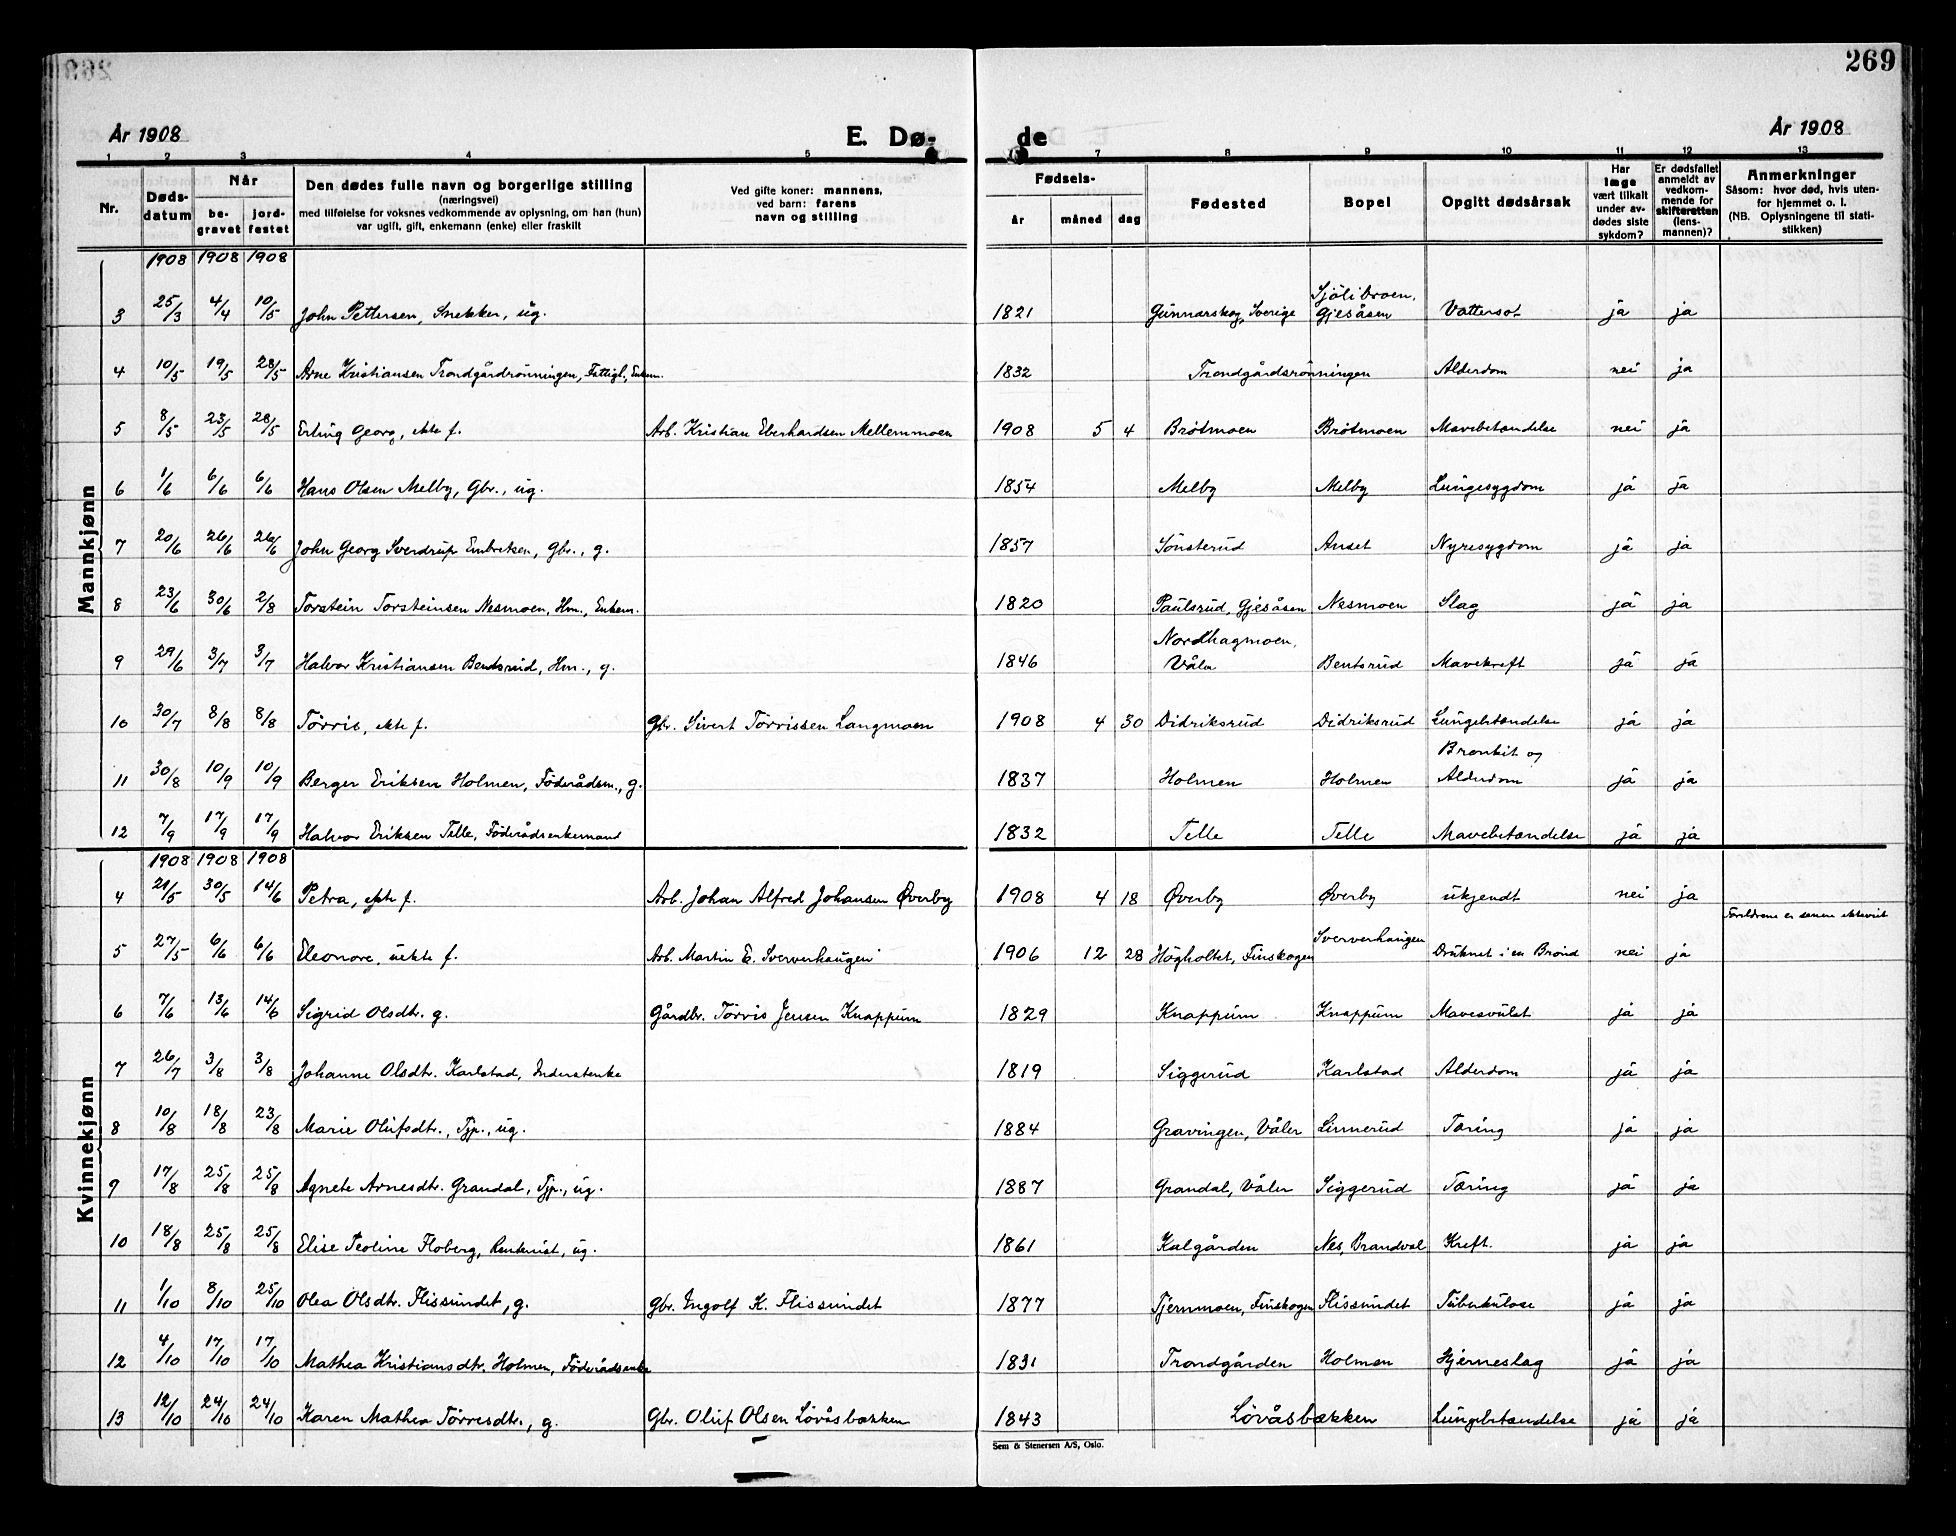 269
År 1908 E. Dø- de År 1908
1 2 3 4 5 7 8 9 10 11 12 13
Nr. Døds-datum Når be-gravet jord-festet Den dødes fulle navn og borgerlige stilling (næringsvei) med tilføielse for voksnes vedkommende av oplysning, om han (hun) var ugift, gift, enkemann (enke) eller fraskilt Ved gifte koner: mannens, ved barn: farens navn og stilling Fødsels- år måned dag Fødested Bopel Opgitt dødsårsak Har læge vært tilkalt under av-dødes siste sykdom? Er dødsfallet anmeldt av vedkom-mende for skifteretten (lens-mannen)? Anmerkninger Såsom: hvor død, hvis uten-for hjemmet o. l. (NB. Oplysningene til stati-stikken)
Mannkjønn
1908 1908 1908
3 25/3 4/4 10/5 John Pettersen, Snekker, ug. 1821 Gunnarskog, Sverige Sjölibroen, Gjesåsen Vattersot ja ja
4 10/5 19/5 28/5 Arne Kristiansen Trondgårdrönningen, Fattigl., Enkem. 1832 Trondgårdsrönningen Alderdom nei ja
5 8/5 23/5 28/5 Erling Georg, ekte f. Arb. Kristian Eberhardsen Mellemmoen 1908 5 4 Brötmoen Brötmoen Mavebetændelse nei ja
6 1/6 6/6 6/6 Hans Olsen Melby, Gbr., ug. 1854 Melby Melby Lungesygdom ja ja
7 20/6 26/6 26/6 John Georg Sverdrup Embretsen, Gbr., g. 1857 Sönsterud Anset Nyresygdom ja ja
8 23/6 30/6 2/8 Torstein Torsteinsen Nesmoen, Hm., Enkem. 1820 Paulsrud, Gjesåsen Nesmoen Slag ja ja
9 29/6 3/7 3/7 Halvor Kristiansen Bentsrud, Hm., g. 1846 Nordhagmoen, Våler Bentsrud Mavekreft ja ja
10 30/7 8/8 8/8 Törris, ekte f. Gbr. Sivert Törrissen Langmoen 1908 4 30 Didriksrud Didriksrud Lungebetændelse ja ja
11 30/8 10/9 10/9 Berger Eriksen Holmen, Föderådsm., g. 1837 Holmen Holmen Bronkit og Alderdom ja ja
12 7/9 17/9 17/9 Halvor Eriksen Telle, Föderådsenkemand 1832 Telle Telle Mavebetændelse ja ja
Kvinnekjønn
1908 1908 1908
4 21/5 30/5 14/6 Petra, ekte f. Arb. Johan Alfred Johansen Øverby 1908 4 18 Øverby Øverby ukjendt nei ja
5 27/5 6/6 6/6 Eleonore, uekte f. Arb. Martin E. Sververhaugen 1906 12 28 Högholtet, Finskogen Sververhaugen Druknet i en Brönd nei ja Foreldrene er senere ekteviet
6 7/6 13/6 14/6 Sigrid Olsdtr. g. Gårdbr. Törris Jensen Knappum 1829 Knappum Knappum Mavesvulst ja ja
7 26/7 3/8 3/8 Johanne Olsdtr. Karlstad, Inderstenke 1819 Siggerud Karlstad Alderdom ja ja
8 10/8 18/8 23/8 Marie Olufsdtr., Tjp., ug. 1884 Gravingen, Våler Linnerud Tæring ja ja
9 17/8 25/8 25/8 Agnete Arnesdtr. Grandal, Tjp., ug. 1887 Grandal, Våler Siggerud Tæring ja ja
10 18/8 25/8 25/8 Elise Teoline Floberg, Rentenist, ug. 1861 Kalgården Nes, Brandval Kreft. ja ja
11 1/10 8/10 25/10 Olea Olsdtr. Flissundet, g. Gbr. Ingolf K. Flissundet 1877 Tjernmoen, Finskogen Flissundet Tuberkulose ja ja
12 4/10 17/10 17/10 Mathea Kristiansdtr. Holmen, Föderådsenke 1831 Trondgården Holmen Hjerneslag ja ja
13 12/10 24/10 24/10 Karen Mathea Törresdtr., g. Gbr. Oluf Olsen Lövåsbækken 1843 Lövåsbækken Lungebetændelse ja ja
Sem & Stenersen A/S, Oslo.